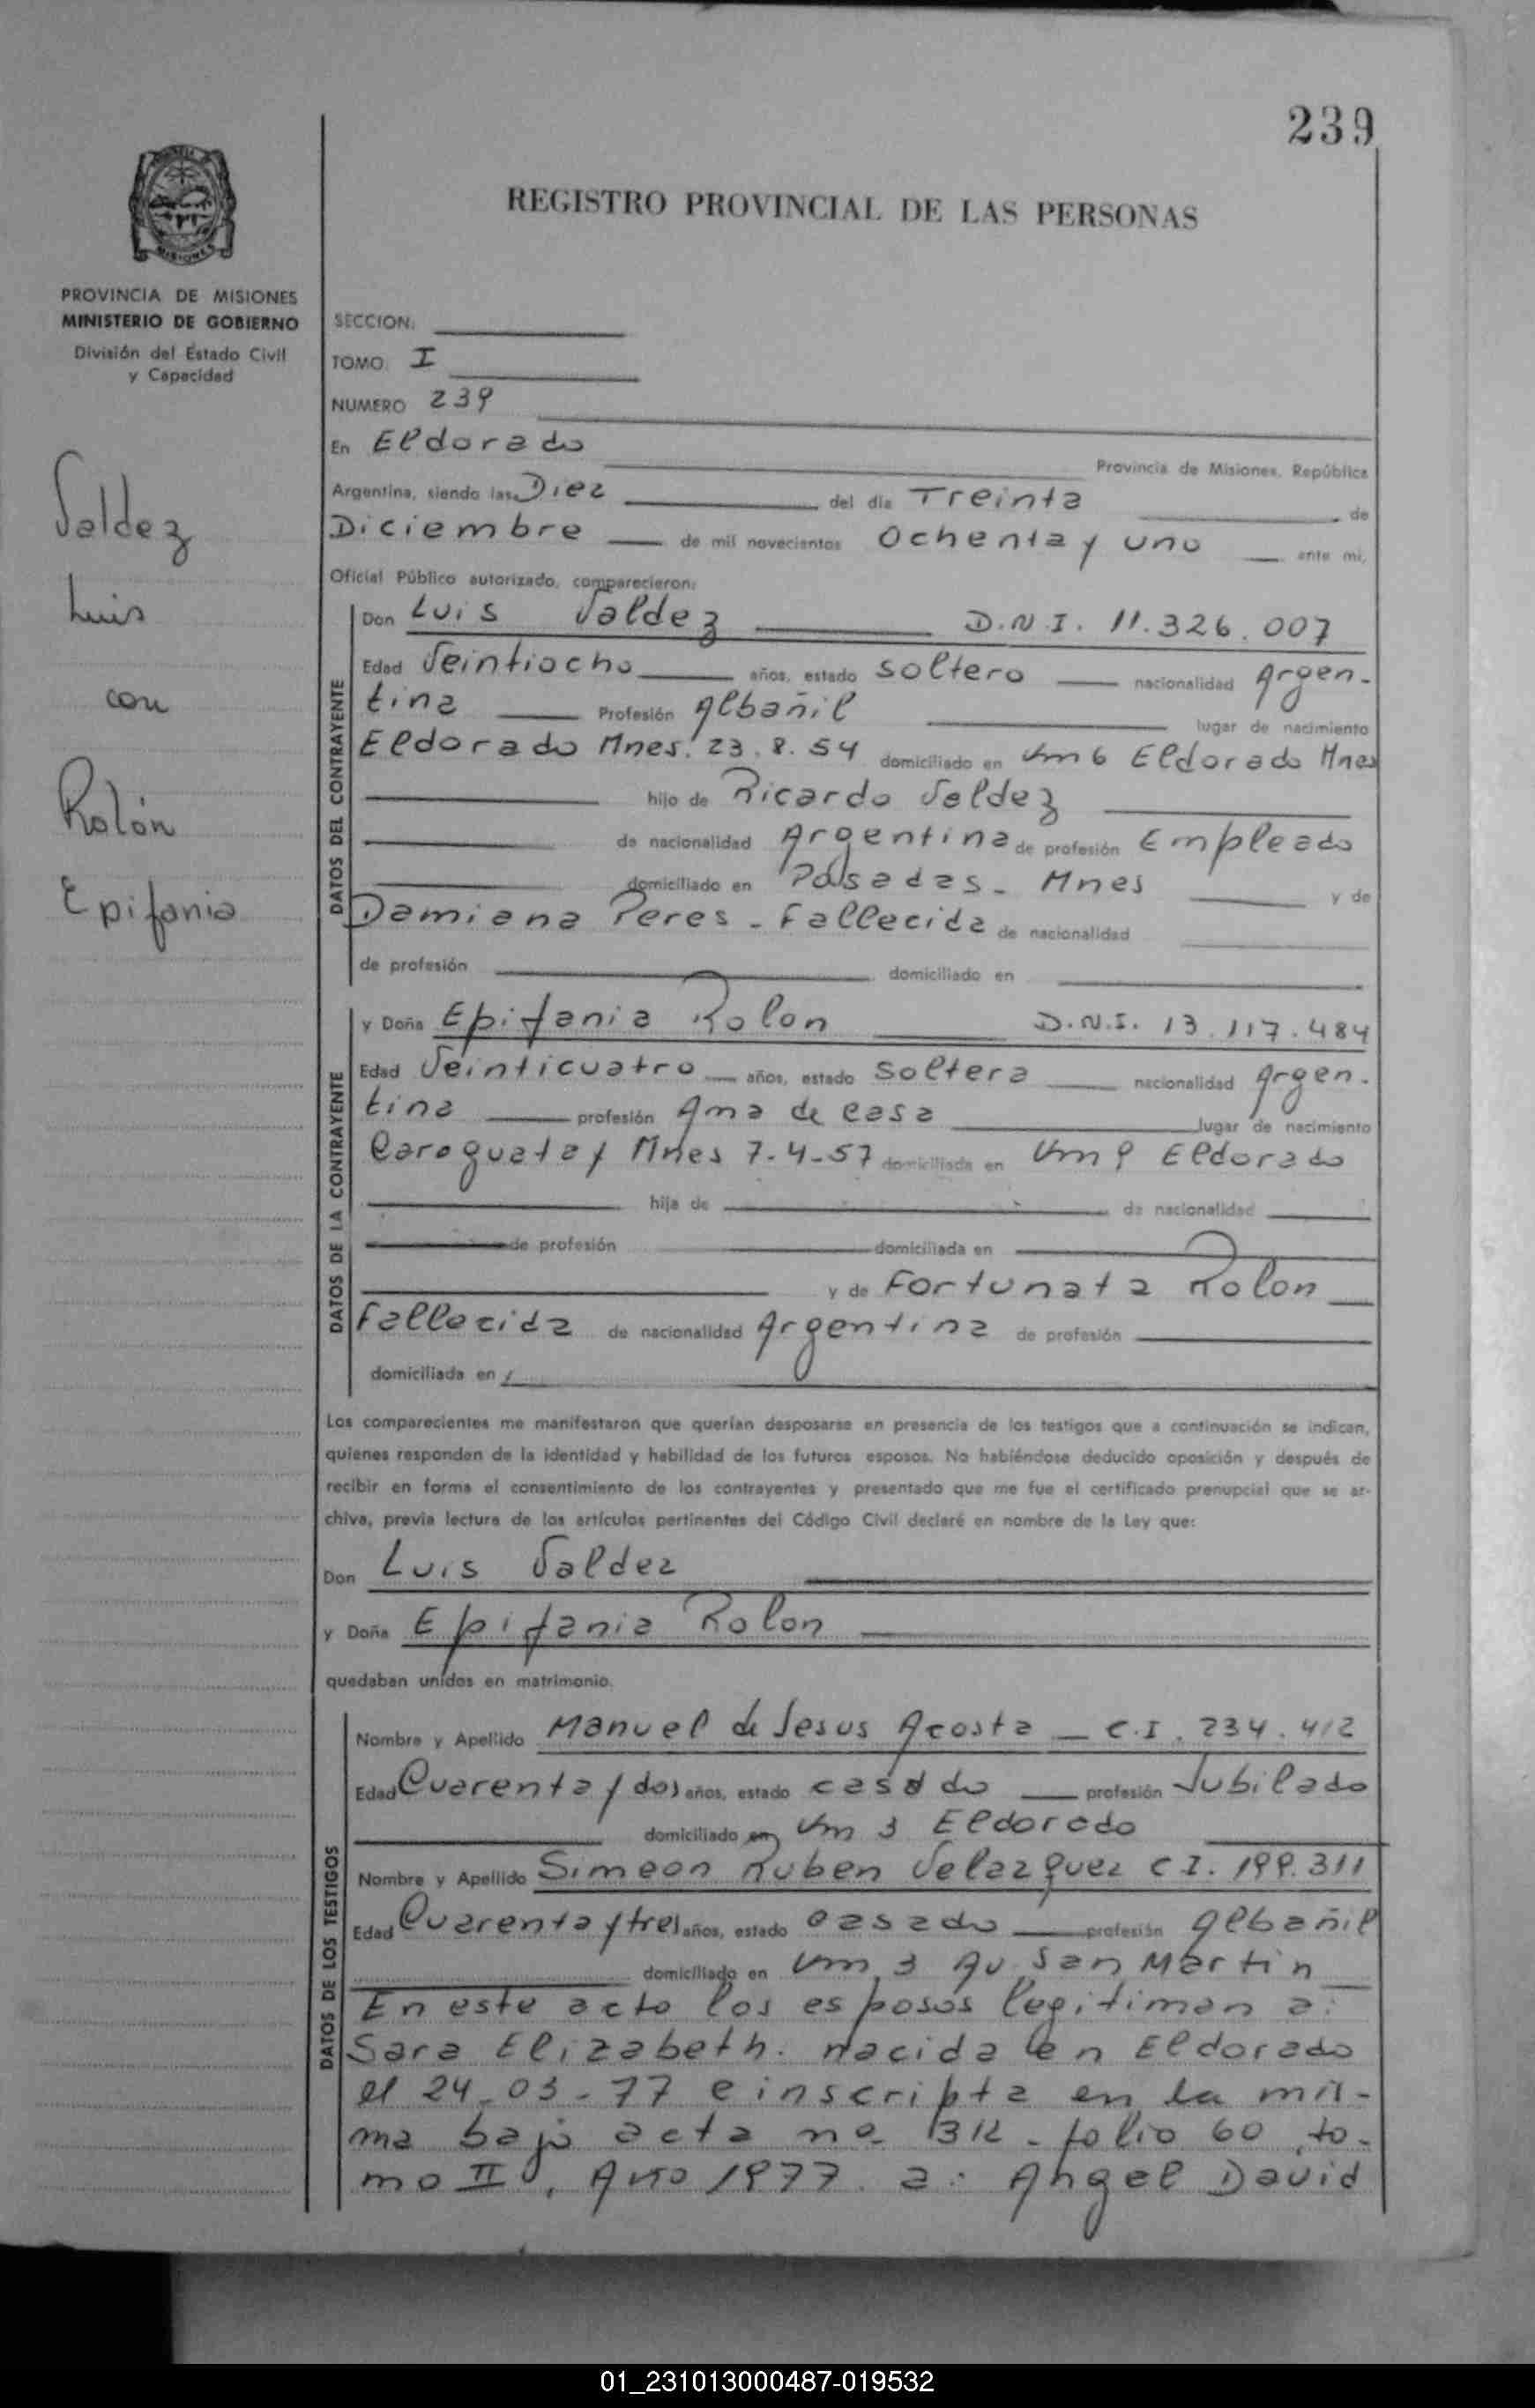 239
REGISTRO PROVINCIAL DE LAS PERSONAS
PROVINCIA DE MISIONES
MINISTERIO DE GOBIERNO
División del Estado Civil
y Capacidad
Valdez
Luis
con
Rolón
Epifania
SECCION.
TOMO. I
NUMERO 239
En Eldorado Provincia de Misiones, República
Argentina, siendo las Diez del día Treinta de
Diciembre de mil novecientos Ochenta y uno ante mi,
Oficial Público autorizado, comparecieron:
DATOS DEL CONTRAYENTE
Don Luis Valdez D.N.I. 11.326.007
Edad Veintiocho años, estado soltero nacionalidad Argen-
tina Profesión Albañil lugar de nacimiento
Eldorado Mnes. 23.8.54 domiciliado en Km 6 Eldorado Mnes
hijo de Ricardo Valdez
de nacionalidad Argentina de profesión Empleado
domiciliado en Posadas - Mnes y de
Damiana Peres - Fallecida de nacionalidad
de profesión domiciliado en
DATOS DE LA CONTRAYENTE
y Doña Epifania Rolon D.N.I. 13.117.484
Edad Veinticuatro años, estado Soltera nacionalidad Argen-
tina profesión Ama de casa lugar de nacimiento
Caraguatay Mnes 7-4-57 domiciliada en Km 9 Eldorado
hija de de nacionalidad
de profesión domiciliada en
y de Fortunata Rolon
Fallecida de nacionalidad Argentina de profesión
domiciliada en
Los comparecientes me manifestaron que querían desposarse en presencia de los testigos que a continuación se indican,
quienes responden de la identidad y habilidad de los futuros esposos. No habiéndose deducido oposición y después de
recibir en forma el consentimiento de los contrayentes y presentado que me fue el certificado prenupcial que se ar-
chiva, previa lectura de los artículos pertinentes del Código Civil declaré en nombre de la Ley que:
Don Luis Valdez
y Doña Epifania Rolon
quedaban unidos en matrimonio.
DATOS DE LOS TESTIGOS
Nombre y Apellido Manuel de Jesus Acosta - C.I. 234.412
Edad Cuarenta y dos años, estado casado profesión Jubilado
domiciliado en Km 3 Eldorado
Nombre y Apellido Simeon Ruben Velazquez C I. 199.311
Edad Cuarenta y tres años, estado casado profesión Albañil
domiciliado en Km 3 Av San Martin
En este acto los esposos legitiman a:
Sara Elizabeth. nacida en Eldorado
el 24-03-77 e inscripta en la mis-
ma bajo acta no 312 - folio 60, to-
mo II, Año 1977. a: Angel David
01_231013000487-019532